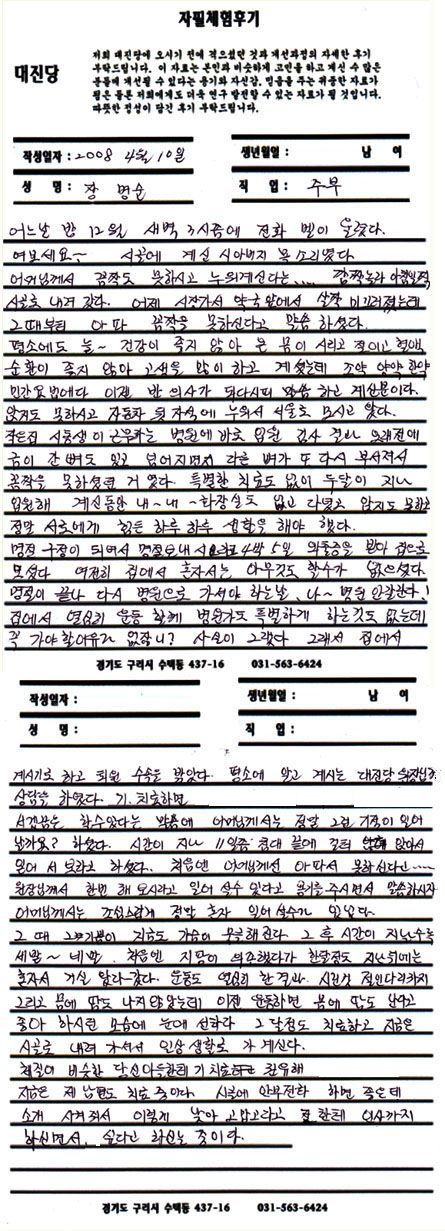 자필체험후기
대진당
저희 대진당에 오시기 전에 적으셨던 것과 개선과정의 자세한 후기
부탁드립니다. 이 자료는 본인과 비슷하게 고민을 하고 계신 수 많은
분들께 개선될 수 있다는 용기와 자신감, 믿음을 주는 귀중한 자료가
됨은 물론 저희에게도 더욱 연구 발전할 수 있는 자료가 될 것입니다.
따뜻한 정성이 담긴 후기 부탁드립니다.
작성일자 : 2008 4월 10일 생년월일 : 남 여
성 명 : 장 명순 직 업 : 주부
어느날 밤 12월 새벽 3시쯤에 전화 벨이 울렸다.
여보세요~ 시골에 계신 시아버지 목소리였다
어머님께서 꼼짝도 못하시고 누워계신다는.... 깜짝놀라 아침일찍
시골로 내려 갔다. 어제 시장가서 약국앞에서 살짝 미끄러졌는데
그때부터 아파 꼼짝을 못하신다고 말씀 하셨다.
평소에도 늘~ 건강이 좋지 않아 온 몸이 시리고 절이고 혈액
순환이 좋지 않아 고생을 많이 하고 계셨는데 조약 양약 한약
민간요법에다 이젠 반 의사가 되다시피 말씀 하고 계신분이다.
앉지도 못하시고 자동차 뒷 자석에 누워서 서울로 모시고 왔다.
작은집 시동생이 근무하는 병원에 바로 입원 검사 결과 오래전에
금이 간 뼈도 있고 넘어지면서 다른 뼈가 또 다시 부서져서
꼼짝을 못하셨던 거 였다. 특별한 치료도 없이 두달이 지나
입원해 계신동안 내~내~화장실도 업고 다녔고 앉지도 못하고
정말 서로에게 힘든 하루 하루 생활을 해야 했다.
명절 구정이 되면서 명절보내시라고 4박 5일 외출증을 받아 집으로
모셨다 여전히 집에서 혼자서는 아무것도 할수가 없으셨다.
명절이 끝나 다시 병원으로 가셔야 하는날, 나~ 병원 안갈란다!
집에서 열심히 운동 할께 병원가도 특별하게 하는것도 없는데
꼭 가야할이유가 없잖니? 사실이 그랬다 그래서 집에서
경기도 구리시 수택동 437-16 031-563-6424
작성일자 : 생년월일 : 남 여
성 명 : 직 업 :
계시기로 하고 퇴원 수속을 밟았다. 평소에 알고 계시는 대진당 원장님께
상담을 하였다. 기.치료하면
시겁품은 할수있다는 말씀에 어머님께서는 정말 그런 기적이 있어
날까요? 하셨다. 시간이 지나 11일쯤 침대 끝에 걸터 앉아
일어 서 보라고 하셨다. 처음엔 어머님께선 아파서 못하신다고....
원장님께서 한번 해 보시라고 일어 설수 있다고 용기를 주시면서 말씀하시자
어머님께서는 조심스럽게 정말 혼자 일어 설수가 있었다.
그 때 그 기쁨이 지금도 가슴이 뭉클해 진다. 그 후 시간이 지날수록
세발~ 네발. 처음엔 지팡이 의존했다가 한달정도 지났을때는
혼자서 거실 왔다~갔다. 운동도 열심히 한 결과 시리고 절인다리까지
그리고 몸에 땀도 나지 않았는데 이젠 운동하면 몸에 땀도 난다고
좋아 하시던 모습에 눈에 선하다 그 달정도 치료하고 지금은
시골로 내려 가셔서 일상생활로 가 계신다.
체질이 비슷한 당신 아들한테 기치료하라 권유해
지금은 제 남편도 치료 중이다. 시골에 안부전화 하면 좋은데
소개 시켜줘서 이렇게 낳아 고맙고라고 꼭 한테 인사까지
하신면서, 싶다고 하신는 중이다.
경기도 구리시 수택동 437-16 031-563-6424